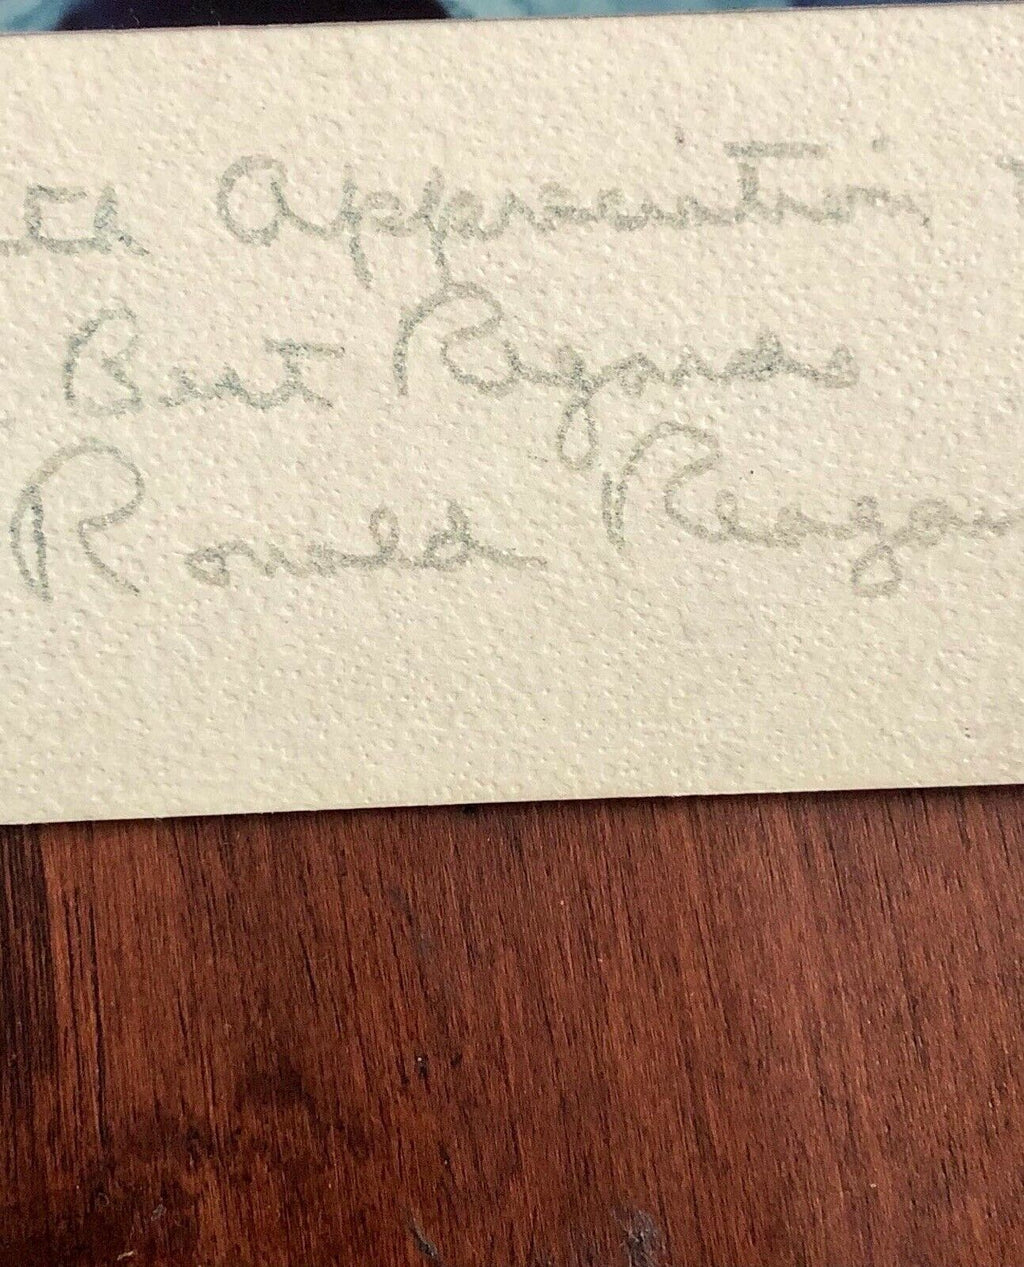 ith Appreciation
Best Regards
Ronald Reagan